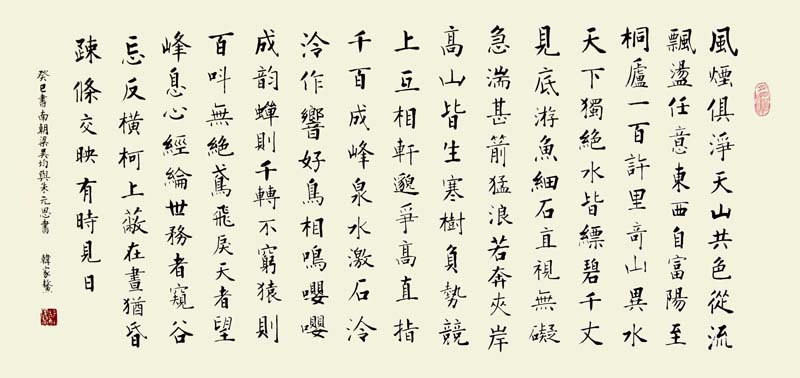 風煙俱淨天山共色從流
飄盪任意東西自富陽至
桐廬一百許里奇山異水
天下獨絕水皆縹碧千丈
見底游魚細石直視無礙
急湍甚箭猛浪若奔夾岸
高山皆生寒樹負勢競
上互相軒邈爭高直指
千百成峰泉水激石泠
泠作響好鳥相鳴嚶嚶
成韵蟬則千轉不窮猿則
百叫無絕鳶飛戾天者望
峰息心經綸世務者窺谷
忘反橫柯上蔽在晝猶昏
疎條交映有時見日
癸巳書南朝梁吳均與朱元思書 韓家鰲